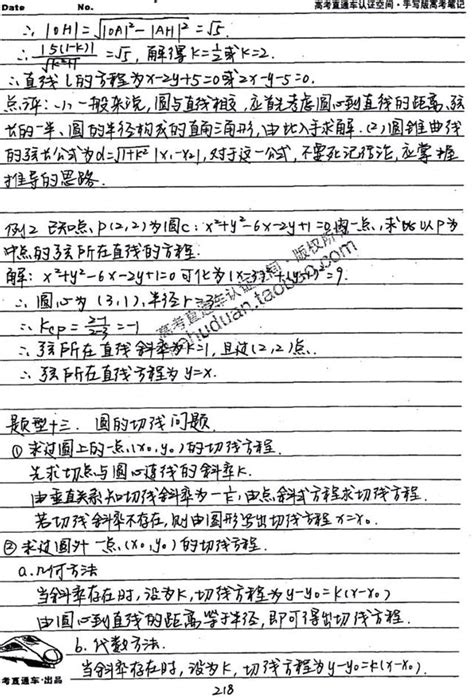 Date No. 高考直通车认证空间·手写版高考笔记
∴ |OH|=√|OA|²-|AH|² =√5.
∴ |5(1-k)|/√k²+1 =√5, 解得k=1/2或k=2.
∴ 直线l的方程为x-2y+5=0或2x-y-5=0.
点评: (1) 一般来说, 圆与直线相交, 应首先考虑圆心到直线的距离、弦
长的一半、圆的半径构成的直角三角形, 由此入手求解. (2) 圆锥曲线
的弦长公式为d=√1+k² |x₁-x₂|, 对于这一公式, 不要死记得法, 应掌握
推导的思路.
例2 已知点P(2,2)为圆C: x²+y²-6x-2y+1=0内一点, 求以P为
中点的弦所在直线的方程.
解: x²+y²-6x-2y+1=0可化为(x-3)²+(y-1)²=9.
∴ 圆心为 (3,1), 半径r=3
∴ Kcp = 2-1/2-3 = -1
∴ 弦所在直线斜率为k=1, 且过(2,2)点.
∴ 弦所在直线方程为y=x.
高考直通车认证空间·版权所有
shuduan.taobao.com
题型十三. 圆的切线问题.
① 求过圆上的一点(x₀,y₀)的切线方程.
先求切点与圆心连线的斜率k.
由垂直关系知切线斜率为-1/k, 由点斜式方程求切线方程.
若切线斜率不存在, 则由图形写出切线方程x=x₀.
② 求过圆外一点(x₀,y₀)的切线方程.
a.几何方法
当斜率存在时, 设为k, 切线方程为y-y₀=k(x-x₀)
由圆心到直线的距离等于半径, 即可得出切线方程.
b. 代数方法.
当斜率存在时, 设为k, 切线方程为y-y₀=k(x-x₀).
考直通车·出品
218